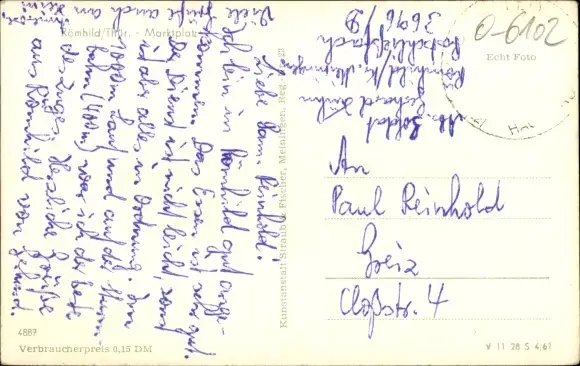 Römhild/Thür. - Marktplatz
Liebe Fam. Reinhold!
Ich bin in Römhild gut ange-
kommen. Das Essen ist sehr gut.
Der Dienst ist nicht leicht sonst
ist aber alles in Ordnung. Im
1000m Lauf und auf der Sturm-
bahn (400m) war ich der beste
des Zuges. Herzliche Grüße
aus Römhild von
Viele
Grüße auch an
Abs. Soldat
Gerhard
Römhild/Kr. Meiningen
Postschließfach
3696/D
O-6102
Echt Foto
An
Paul Reinhold
Greiz
Cloßstr. 4
Kunstanstalt Straub & Fischer, Meiningen, Reg.
4887
Verbraucherpreis 0,15 DM
V 11 28 S 4/61